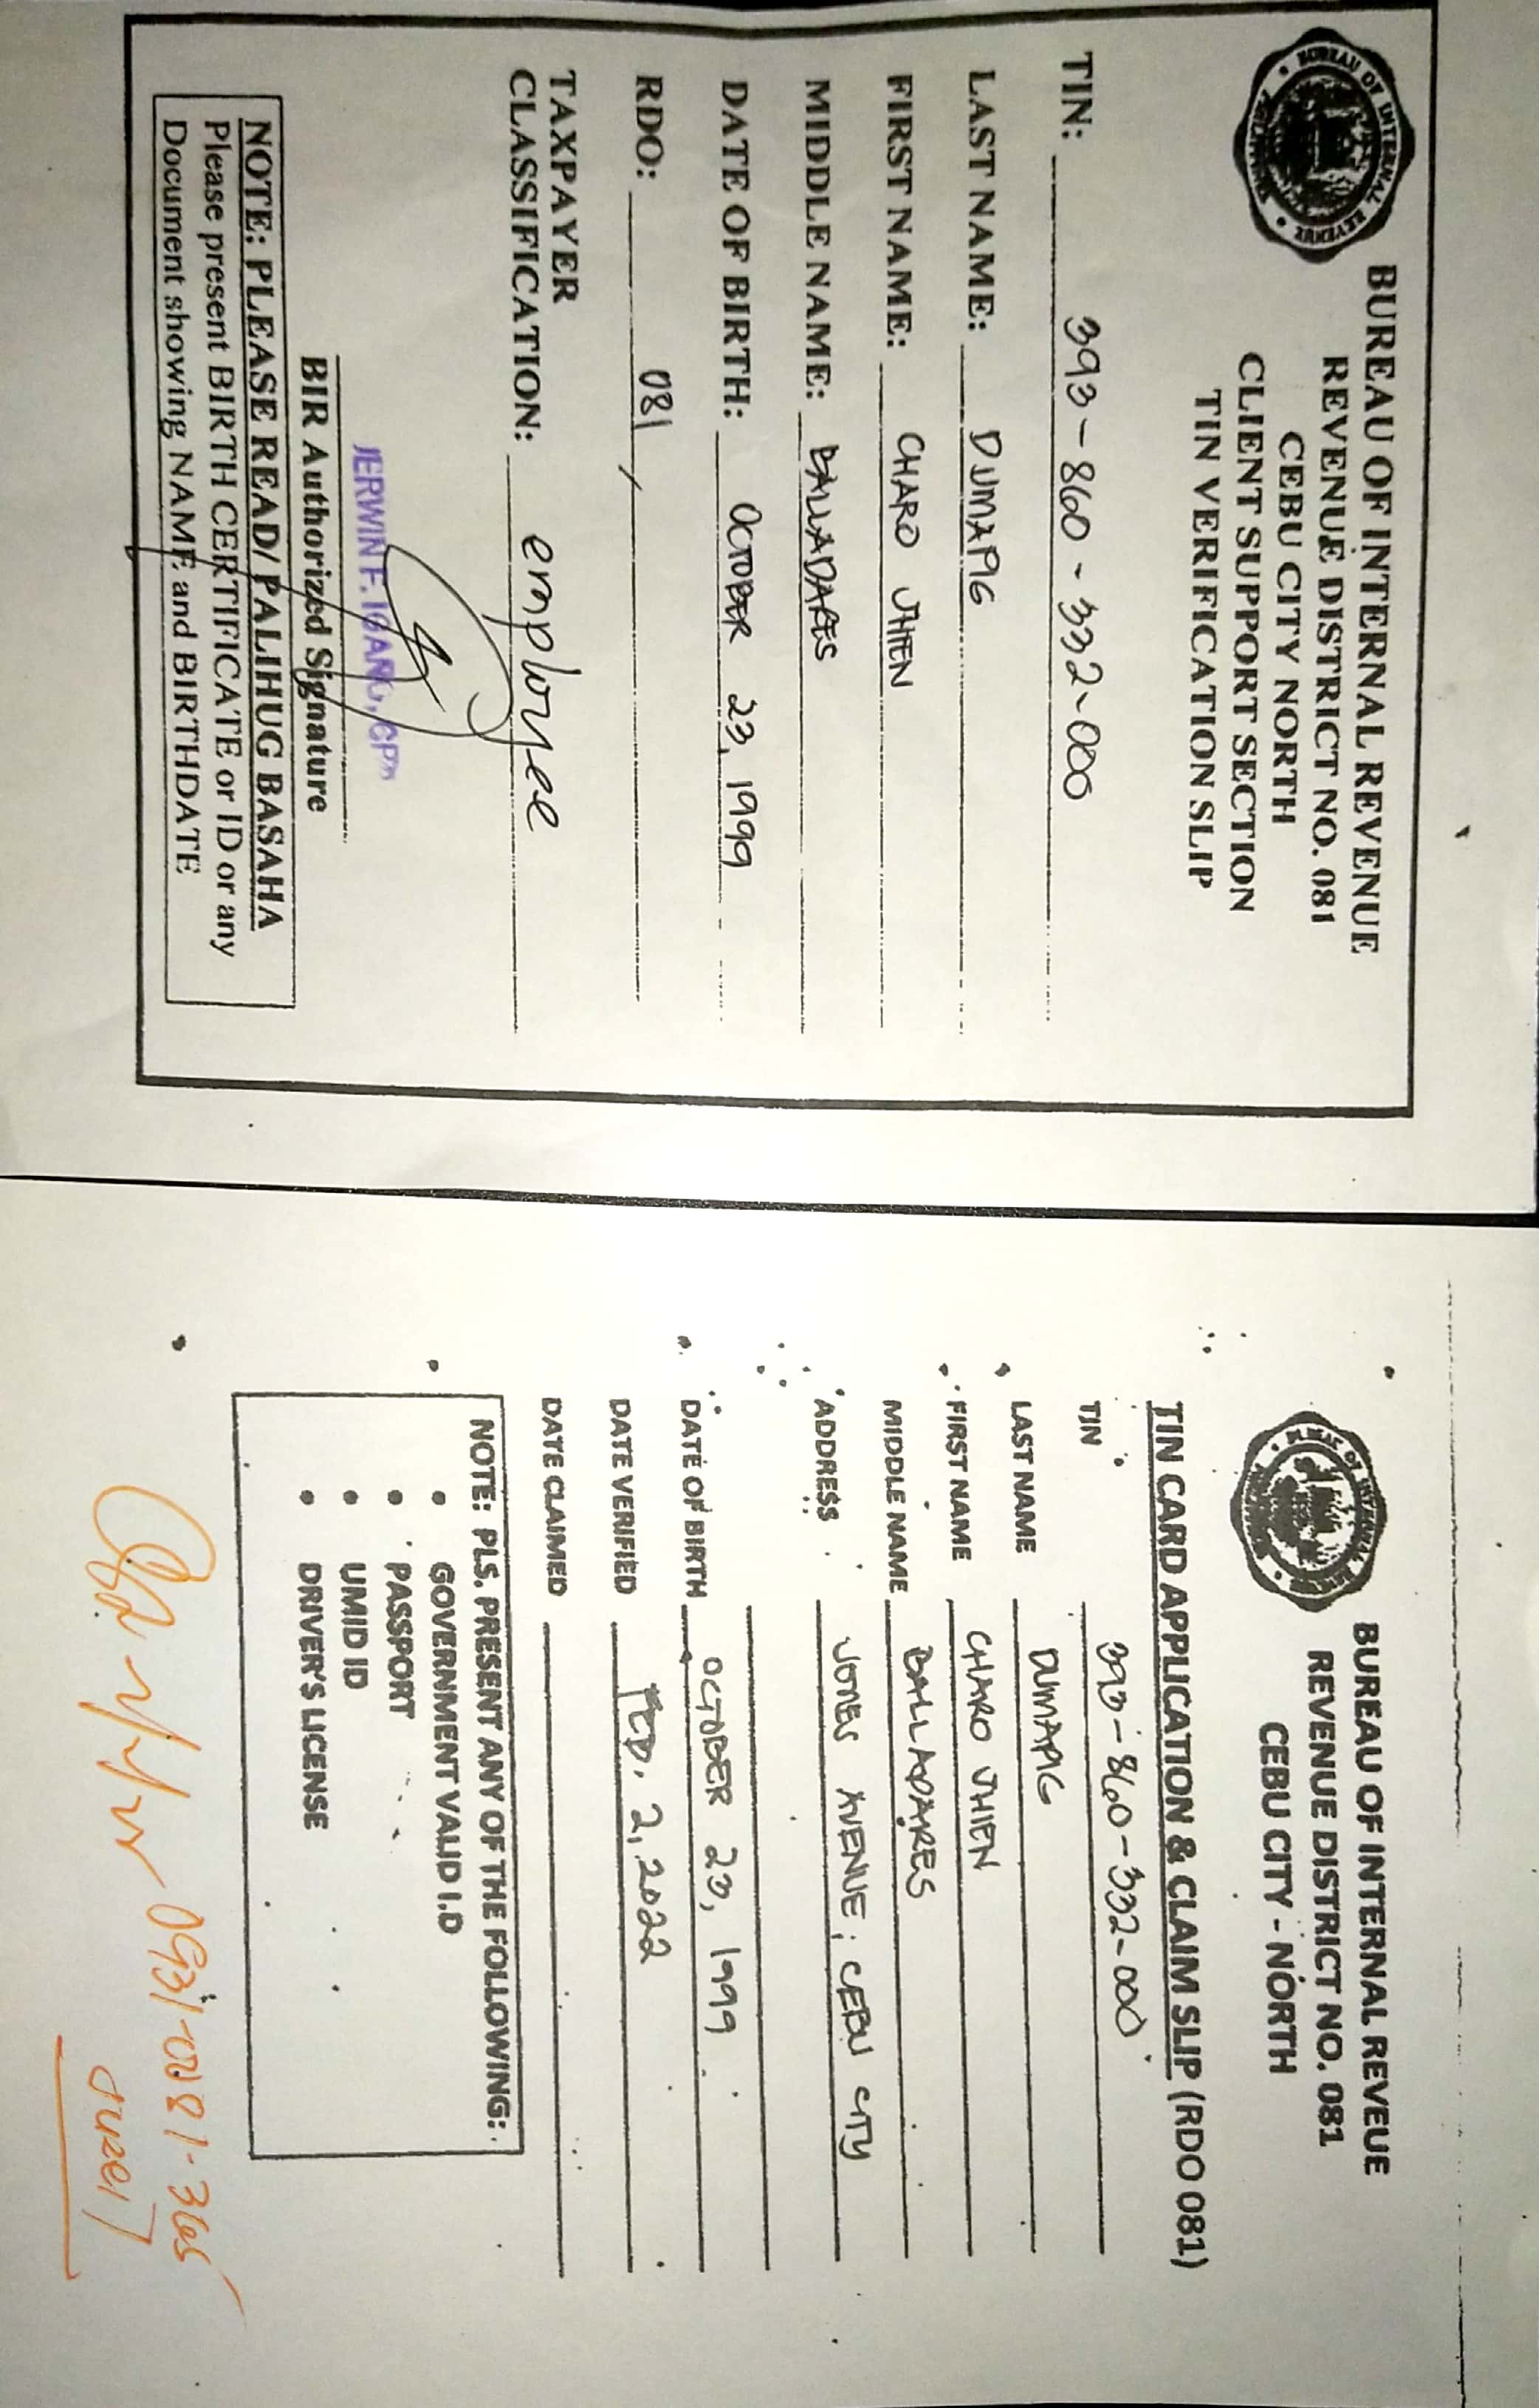 BUREAU OF INTERNAL REVENUE
REVENUE DISTRICT NO. 081
CEBU CITY NORTH
CLIENT SUPPORT SECTION
TIN VERIFICATION SLIP
TIN: 393-860-332-000
LAST NAME: DUMAPIG
FIRST NAME: CHARO JHIEN
MIDDLE NAME: BALLADARES
DATE OF BIRTH: OCTOBER 23, 1999
RDO: 081
TAXPAYER
CLASSIFICATION: employee
JERWIN F.
BIR Authorized Signature
NOTE: PLEASE READ/ PALIHUG BASAHA
Please present BIRTH CERTIFICATE or ID or any
Document showing NAME and BIRTHDATE
BUREAU OF INTERNAL REVEUE
REVENUE DISTRICT NO. 081
CEBU CITY - NORTH
TIN CARD APPLICATION & CLAIM SLIP (RDO 081)
TIN 393-860-332-000
LAST NAME DUMAPIG
FIRST NAME CHARO JHIEN
MIDDLE NAME BALLADARES
ADDRESS JONES AVENUE; CEBU CITY
DATE OF BIRTH OCTOBER 23, 1999
DATE VERIFIED FEB. 2, 2022
DATE CLAIMED
NOTE: PLS. PRESENT ANY OF THE FOLLOWING:
• GOVERNMENT VALID I.D
• PASSPORT
• UMID ID
• DRIVER'S LICENSE